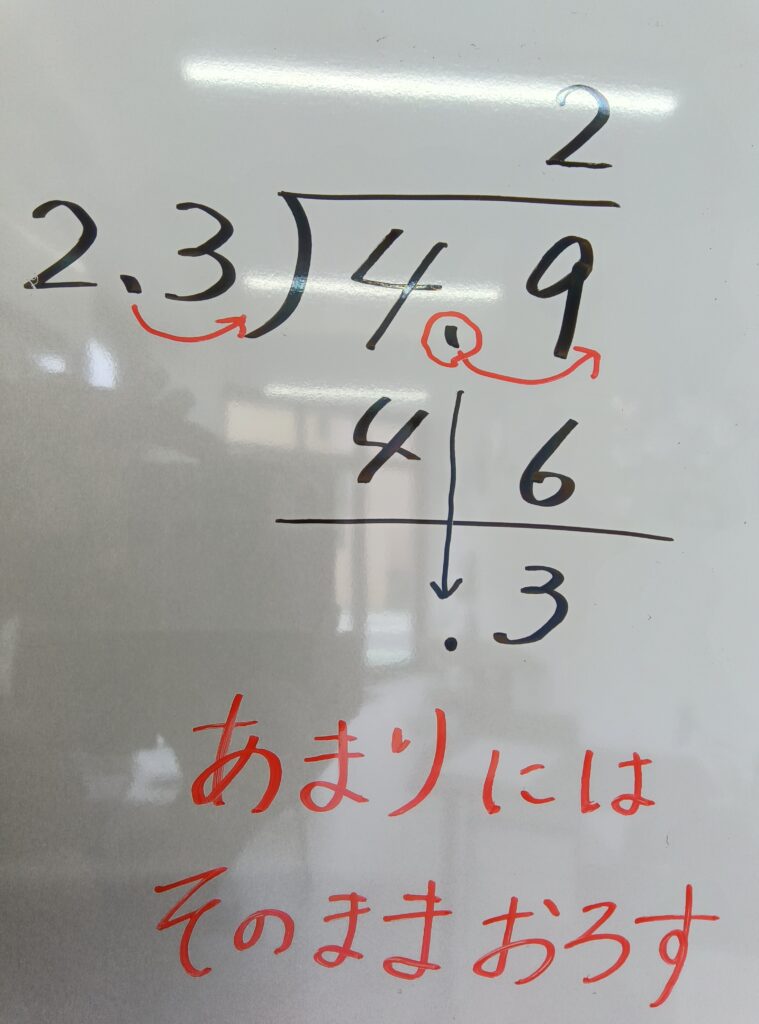 2
2.3)4.9
4 6
.3
あまりには
そのままおろす